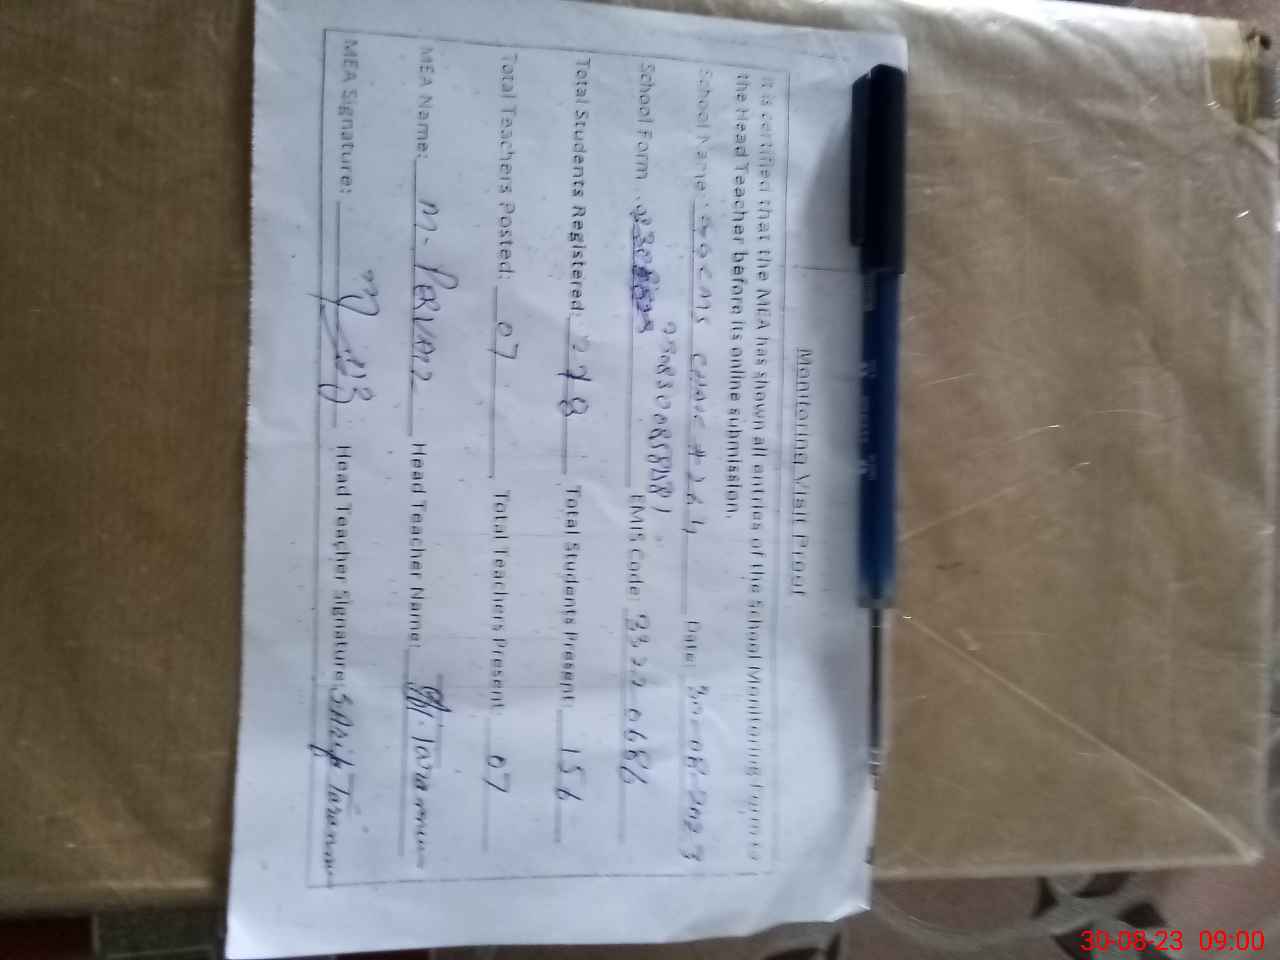 Monitoring Visit Proof
It is certified that the MEA has shown all entries of the School Monitoring Form to
the Head Teacher before its online submission.
School Name: # 264 Date: 30-08-2023
School Form EMIS Code: 33220686
Total Students Registered: 278 Total Students Present: 156
Total Teachers Posted: 07 Total Teachers Present: 07
MEA Name: M. PERVAIZ Head Teacher Name:
MEA Signature: Head Teacher Signature:
30-08-23 09:00